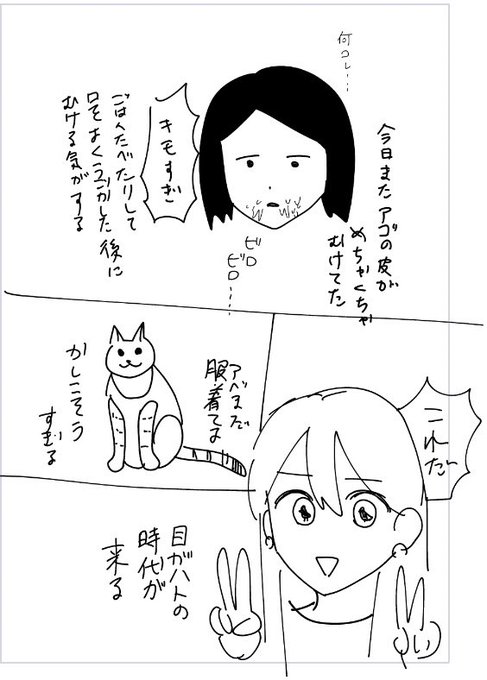 何コレ…
今日またアゴの皮が
めちゃくちゃ
むけてた
キモすぎ
ごはんたべたりして
口をよくうごかした後に
むける気がする
ビロ
ビロ…
これだ
アベまだ
服着てる
かしこそう
すぎる
目がハトの
時代が
来る